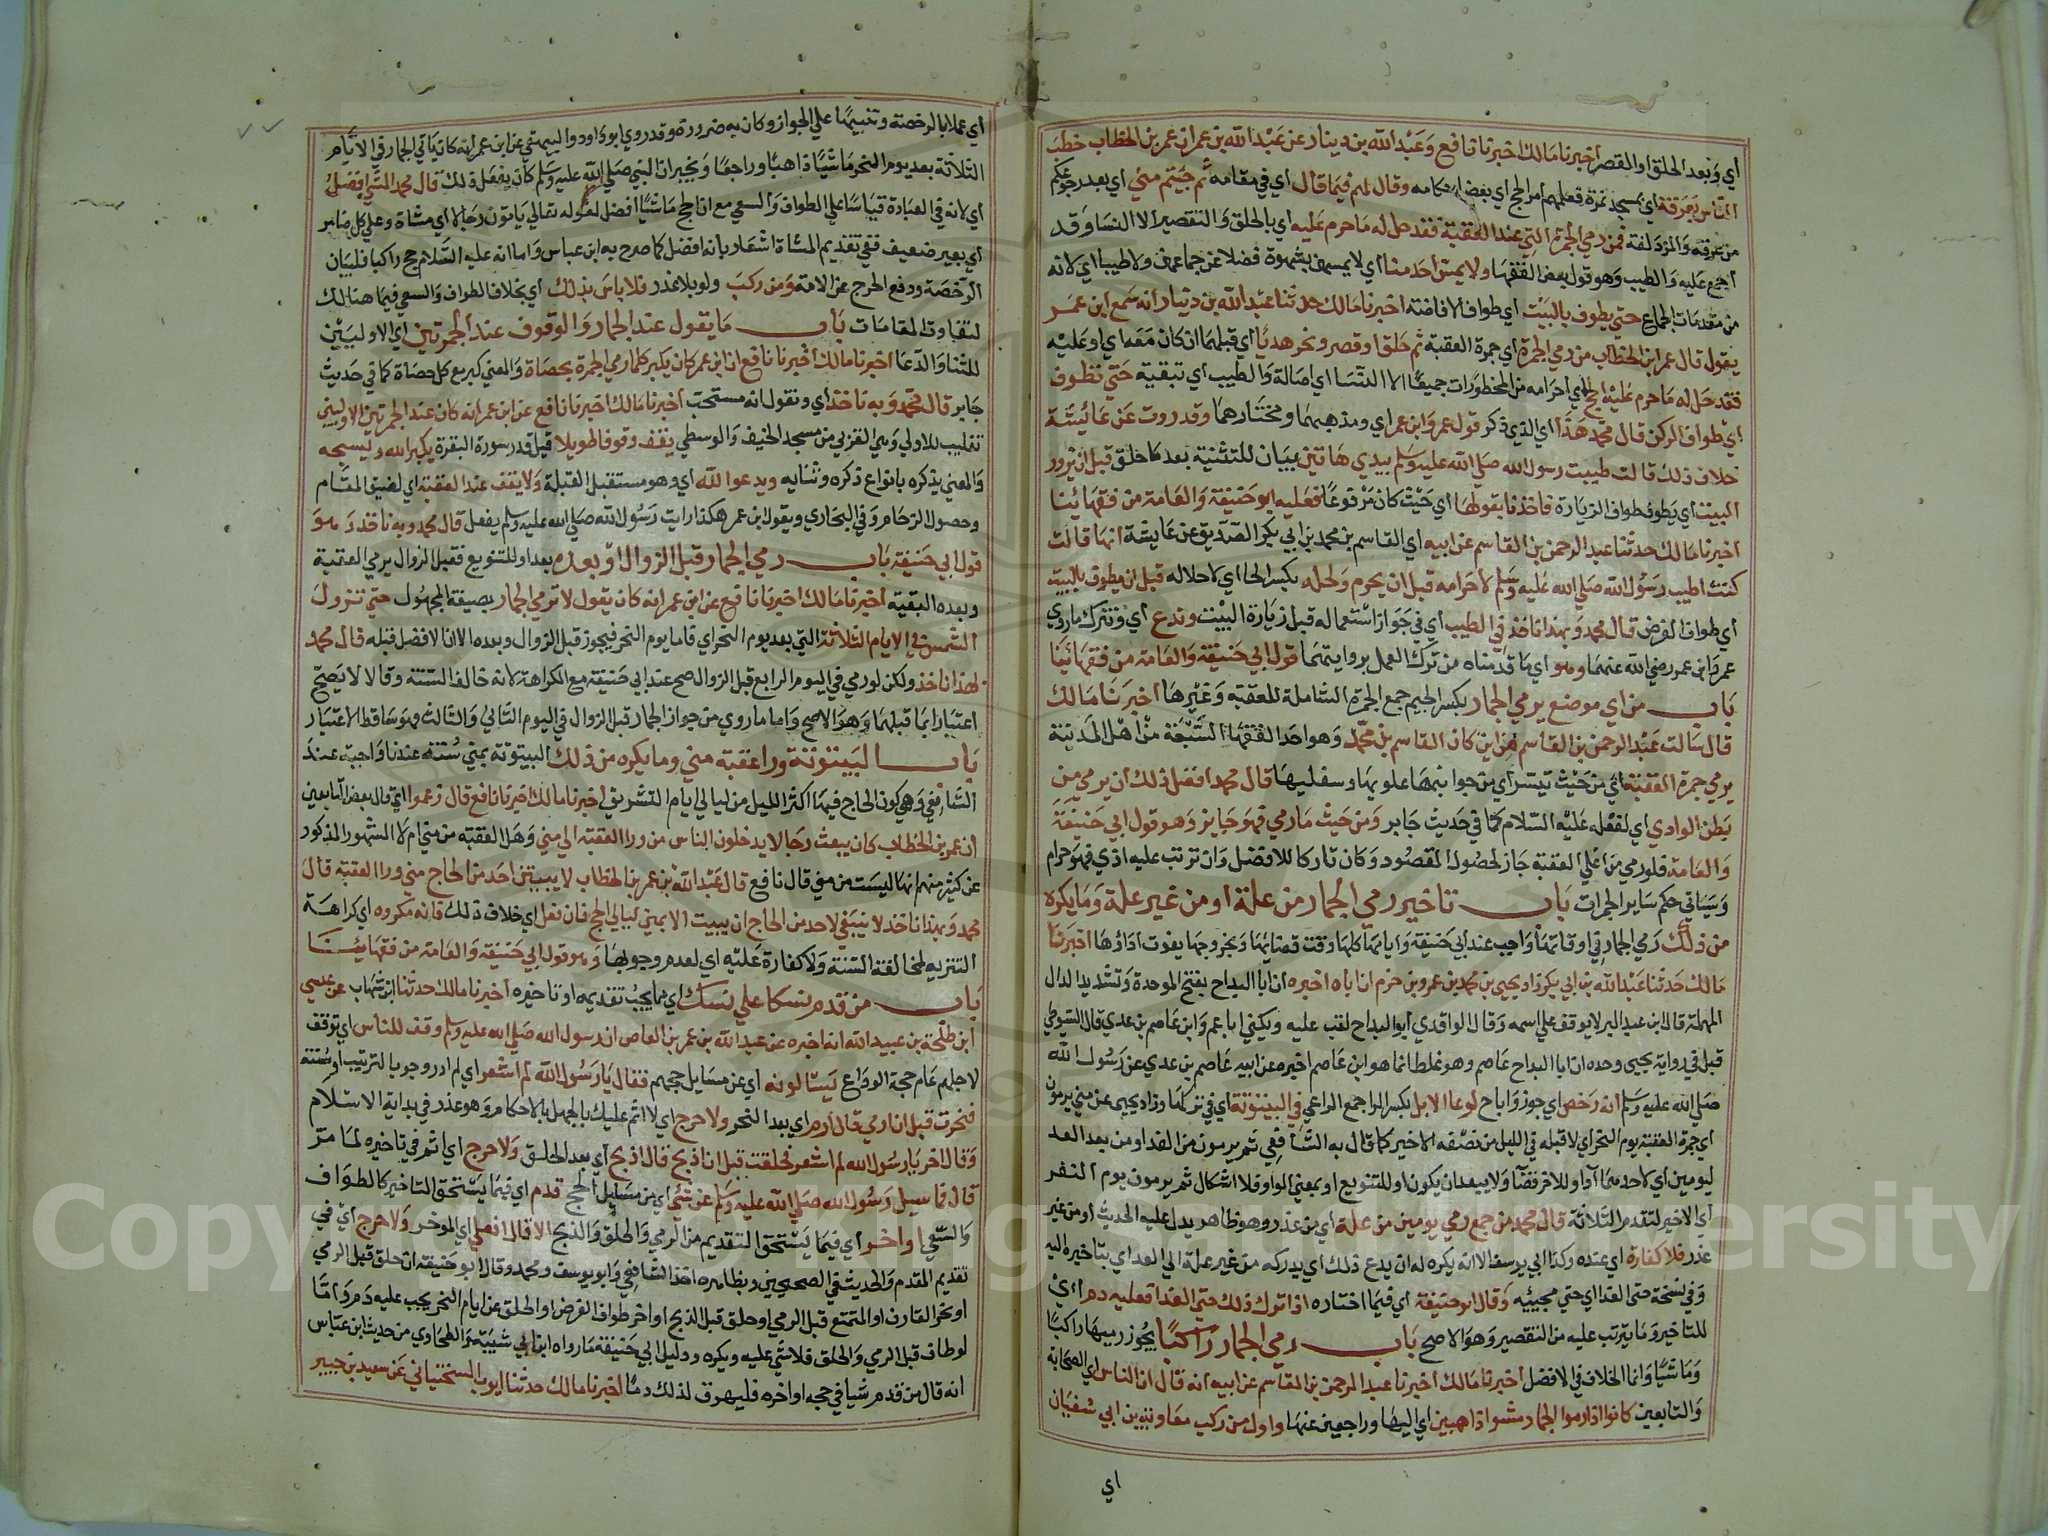 أي وبعد الحلق او القصر اخبرنا مالك اخبرنا نافع وعبد الله بن دينار عن عبد الله بن عمر ان عمر بن الخطاب خطب
الناس بعرفة اي بمسجد نمرة فعلمهم امر الحج اي بعض احكامه وقال لهم فيما قال اي في مقامه ثم جيتم مني اي بعد رجوعكم
من عرفة والمزدلفة فمن رمي الجمرة التي عند العقبة فقد حل له ما حرم عليه اي بالحلق والتقصير الا النسا وقد
اجمع عليه والطيب وهو قول بعض الفقها ولا يمس احد منا اي لا يمسهن بشهوة فضلا عن جماعهن ولا طيبا اي لانه
من مقدمات الجماع حتي يطوف بالبيت اي طواف الافاضة اخبرنا مالك حدثنا عبد الله بن دينار انه سمع ابن عمر
يقول قال عمر ابن الخطاب من رمي الجمرة اي جمرة العقبة ثم حلق او قصر ونحر هديا اي قبلهما ان كان معه اي او عليه
فقد حل له ما حرم عليه في الحج اي احرامه من المحظورات جميعا الا النسا اي اصالة والطيب اي تبقية حتي تطوف
اي طواف الركن قال محمد هذا اي الذي ذكر قول عمر وابن عمر اي ومذهبهما ومختارهما وقد روت عن عائيشة
خلاف ذلك قالت طيبت رسول الله صلي الله عليه وسلم بيدي هاتين بيان للتثنية بعد ما حلق قبل ان يزور
البيت اي يطوف طواف الزيارة فاخذنا بقولها اي حيث كان مرفوعا فعليه ابو حنيفة والعامة من فقهائينا
اخبرنا مالك حدثنا عبد الرحمن بن القاسم عن ابيه اي القاسم بن محمد بن ابي بكر الصديق عن عايشة انها قالت
كنت اطيب رسول الله صلي الله عليه وسلم لاحرامه قبل ان يحرم ولحله بكسر الحا اي لاحلاله قبل ان يطوف بالبيت
اي طواف الفرض قال محمد وبهذا ناخذ في الطيب اي في جواز استعماله قبل زيارة البيت وندع اي ونترك ما روي
عمر وابن عمر رضي الله عنهما وهو اي ما قدمناه من ترك العمل بروايتهما قول ابي حنيفة والعامة من فقهائينا
باب من اي موضع يرمي الجمار بكسر الجيم جمع الجمرة الشاملة للعقبة وغيرها اخبرنا مالك
قال سالت عبد الرحمن بن القاسم من اين كان القاسم بن محمد وهو احد الفقها السبعة من اهل المدينة
يرمي جمرة العقبة اي من حيث تيسر اي من جوانبها علويها وسفليها قال محمد افضل ذلك ان يرمي من
بطن الوادي اي لفعله عليه السلام كما في حديث جابر ومن حيث ما رمي فهو جايز وهو قول ابي حنيفة
والعامة فلو رمي من اعلي العقبة جاز لحصول المقصود وكان تاركا للافضل وان ترتب عليه اذي فهو حرام
وسياتي حكم ساير الجمرات باب تاخير رمي الجمار من علة او من غير علة وما يكره
من ذلك رمي الجمار في اوقاتها واجب عند ابي حنيفة وايامها كلها وقت قضائها وبخروجها يفوت اداؤها اخبرنا
مالك حدثنا عبد الله بن ابي بكر او يحيي بن محمد بن عمرو بن حزم ان اباه اخبره ان ابا البداح بفتح الموحدة وتشديد الدال
المهملة قال ابن عبد البر لا يوقف علي اسمه وقال الواقدي ابو البداح لقب عليه ويكني ابا عمرو ابن عاصم بن عدي قال السيوطي
قبل في رواية يحيي وحده ان ابا البداح عاصم وهو غلط انما هو ابن عاصم اخبره عن ابيه عاصم بن عدي عن رسول الله
صلي الله عليه وسلم انه رخص اي جوز واباح لرعا الابل بكسر الرا جمع الراعي في البيتوتة اي في تركها وزاد يحيي عن مني يرمون
اي جمرة العقبة يوم النحر اي لا قبله في الليل من نصفه الاخير كما قال به الشافعي ثم يرمون من الغد او من بعد الغد
ليومين اي لاحدهما ولا يبعد ان يكون او للتنويع او بمعني الواو فلا اشكال ثم يرمون يوم النفر
اي الاخير لتقدم الثلاثة قال محمد من جمع رمي يومين من علة اي من عذر وهو ظاهر يدل عليه الحديث او من غير
عذر فلا كفارة اي عنده وكذا ابي يوسف الا انه يكره له ان يدع ذلك اي يدركه من غير علة الي الغد اي بتاخيره اليه
وفي نسخة حتي الغد اي حتي مجييه وقال ابو حنيفة اي فيما اختاره اذا ترك ذلك حتي الغد فعليه دم اي
للتاخير وما يترتب عليه من التقصير وهو الاصح باب رمي الجمار راكبا يجوز رميها راكبا
وماشيا وانما الخلاف في الافضل اخبرنا مالك اخبرنا عبد الرحمن بن القاسم عن ابيه انه قال ان الناس اي الصحابة
والتابعين كانوا اذا رموا الجمار مشوا ذاهبين اي اليها وراجعين عنها واول من ركب معاوية بن ابي سفيان
اي
اي عملا بالرخصة وتنبيها علي الجواز وكان به ضرورة وقد روي ابو داود والبيهقي عن ابن عمر انه كان ياتي الجمار في الايام
الثلاثة بعد يوم النحر ماشيا ذاهبا وراجعا ويخبر ان النبي صلي الله عليه وسلم كان يفعل ذلك قال محمد المشي افضل
اي لانه في العبادة قياسا علي الطواف والسعي مع ان الحج ماشيا افضل لقوله تعالي ياتون رجالا اي مشاة وعلي كل ضامر
اي بعير ضعيف ففي تقديم المشاة اشعار بانه افضل كما صرح به ابن عباس واما انه عليه السلام حج راكبا فلبيان
الرخصة ودفع الحرج عن الامة ومن ركب ولو بلا عذر فلا باس بذلك اي بخلاف الطواف والسعي فيما هنالك
لتفاوت المقامات باب ما يقول عند الجمار والوقوف عند الجمرتين اي الاوليين
للثنا والدعا اخبرنا مالك اخبرنا نافع ان ابن عمر كان يكبر كلما رمي الجمرة بحصاة والمعني كبر مع كل حصاة كما في حديث
جابر قال محمد وبه ناخذ اي ونقول انه مستحب اخبرنا مالك اخبرنا نافع عن ابن عمر انه كان عند الجمرتين الاوليين
تغليب للاولي وهي القربي من مسجد الخيف والوسطي يقف وقوفا طويلا قيل قدر سورة البقرة يكبر الله ويسبحه
والمعني يذكره بانواع ذكره وثنايه ويدعوا الله اي وهو مستقبل القبلة ولا يقف عند العقبة اي لضيق المقام
وحصول الزحام وفي البخاري ويقول ابن عمر هكذا رايت رسول الله صلي الله عليه وسلم يفعل قال محمد وبه ناخذ وهو
قول ابي حنيفة باب رمي الجمار قبل الزوال او بعده بعد او للتنويع فقبل الزوال يرمي العقبة
وبعده البقية اخبرنا مالك اخبرنا نافع عن ابن عمر انه كان يقول لا ترمي الجمار بصيغة المجهول حتي تزول
الشمس في الايام الثلاثة التي بعد يوم النحر اي فاما يوم النحر فيجوز قبل الزوال وبعده الا ان الافضل قبله قال محمد
بهذا ناخذ ولكن لو رمي في اليوم الرابع قبل الزوال صح عند ابي حنيفة مع الكراهة لانه خالف السنة وقالا لا يصح
اعتبارا بما قبلهما وهو الاصح واما ما روي من جواز الجمار قبل الزوال في اليوم الثاني والثالث فهو ساقط الاعتبار
باب البيتوتة ورا عقبة مني وما يكره من ذلك البيتوتة بمني سنة عندنا واجبة عند
الشافعي وهي كون الحاج فيها اكثر الليل من ليالي ايام التشريق اخبرنا مالك اخبرنا نافع قال زعموا اي قال بعض التابعين
ان عمر بن الخطاب كان يبعث رجالا يدخلون الناس من ورا العقبة الي مني وهل العقبة من مني ام لا المشهور المذكور
عن كثير منهم انها ليست من مني قال نافع قال عبد الله بن عمر بن الخطاب لا يبيتن احد من الحاج مني ورا العقبة قال
محمد وبهذا ناخذ لا ينبغي لاحد من الحاج ان يبيت الا بمني ليالي الحج فان فعل اي خلاف ذلك فانه مكروه اي كراهة
التنزيه لمخالفة السنة ولا كفارة عليه اي لعدم وجوبها وهو قول ابي حنيفة والعامة من فقهائينا
باب من قدم نسكا علي نسك اي مما يجب تقديمه او تاخيره اخبرنا مالك حدثنا ابن شهاب عن عيسي
ابن طلحة بن عبيد الله انه اخبره عن عبد الله بن عمر بن العاص ان رسول الله صلي الله عليه وسلم وقف للناس اي توقف
لاجلهم عام حجة الوداع يسالونه اي عن مسايل حجهم فقال يا رسول الله لم اشعر اي لم ادر وجوب الترتيب او سنته
فنحرت قبل ان ارمي قال ارم اي بعد النحر ولا حرج اي لا اثم عليك بالجهل بالاحكام وهو عذر في بداية الاسلام
وقال اخر يا رسول الله لم اشعر فحلقت قبل ان اذبح قال اذبح اي بعد الحلق ولا حرج اي اثم في تاخيره لما مر
قال فما سيل رسول الله صلي الله عليه وسلم عن شي اي من مسايل الحج قدم اي فيما يستحق التاخير كالطواف
والسعي او اخر اي فيما يستحق التقديم من الرمي والحلق والذبح الا قال افعل اي الموخر ولا حرج اي في
تقديم المقدم والحديث في الصحيحين وبظاهره اخذ الشافعي وابو يوسف ومحمد وقال ابو حنيفة ان حلق قبل الرمي
او نحر القارن او المتمتع قبل الرمي او حلق قبل الذبح او اخر طواف الفرض او الحلق عن ايام النحر يجب عليه دم واما
لو طاف قبل الرمي والحلق فلا شي عليه ويكره ودليل ابي حنيفة ما رواه ابن ابي شيبة والطحاوي من حديث ابن عباس
انه قال من قدم شيا في حجه او اخره فليهرق لذلك دما اخبرنا مالك حدثنا ايوب السختياني عن سعيد بن جبير
Copyright © King Saud University